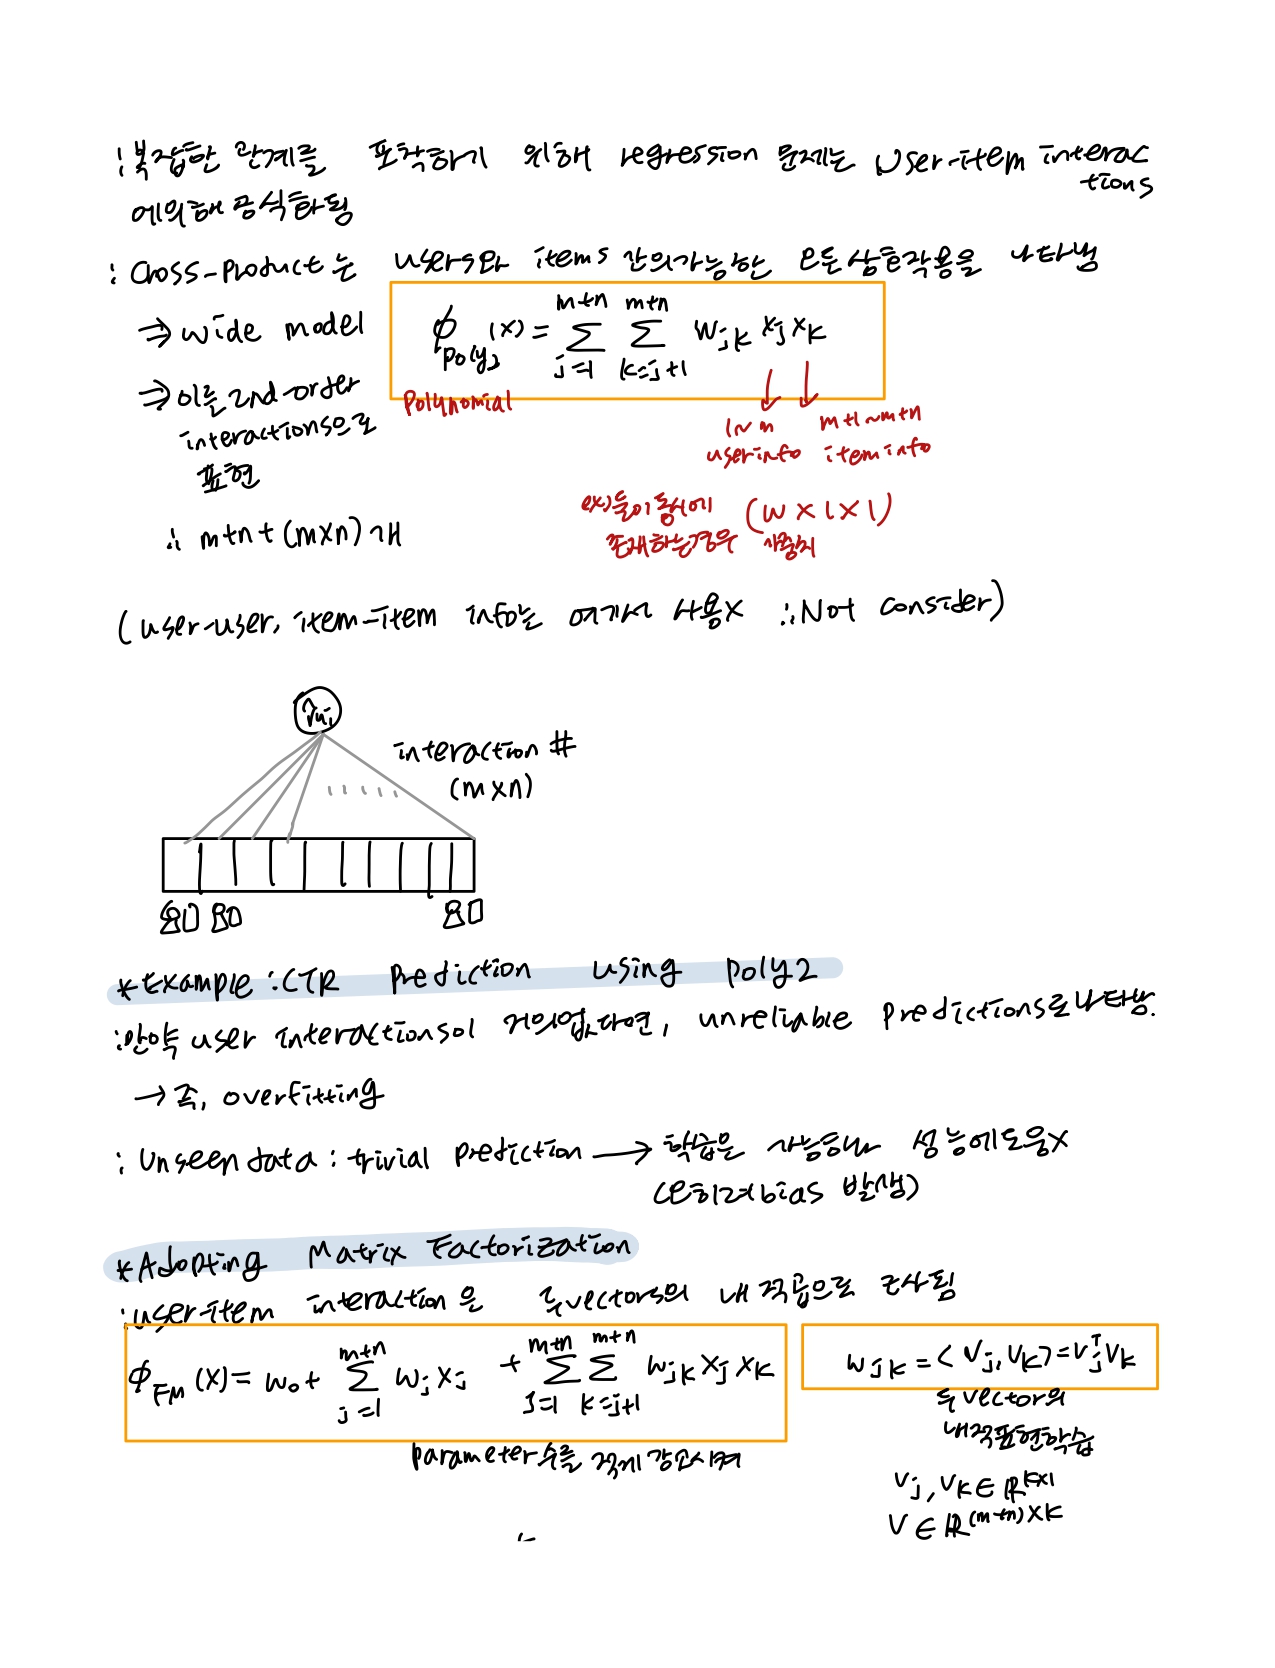 : 복잡한 관계를 포착하기 위해 regression 문제는 user-item interac
tions
에 의해 공식화됨
: Cross-Product는 users와 items 간의 가능한 모든 상호작용을 나타냄
⇒ wide model
ϕ_Poly2 (x) = Σ_{j=1}^{m+n} Σ_{k=j+1}^{m+n} w_jk x_j x_k
Polynomial
⇒ 이를 2nd-order
interactions으로
표현
1~m
user info
m+1~m+n
item info
ex) 둘이 동시에
존재하는 경우
(w × 1 × 1)
가중치
∴ m+n+(m×n)개
(user-user, item-item info는 여기서 사용X ∴ Not consider)
r̂ui
interaction #
(m×n)
* Example : CTR Prediction using poly2
: 만약 user interactions이 거의 없다면, unreliable predictions로 나타남.
→ 즉, overfitting
: Unseen data : trivial prediction → 학습은 가능하나 성능에 도움X
(오히려 bias 발생)
* Adopting Matrix Factorization
: user-item interaction은 두 vectors의 내적곱으로 묘사됨
ϕ_FM (x) = w₀ + Σ_{j=1}^{m+n} w_j x_j + Σ_{j=1}^{m+n} Σ_{k=j+1}^{m+n} w_jk x_j x_k
w_jk = <v_j, v_k> = v_j^T v_k
두 vector의
내적표현학습
parameter 수를 적게 감소시켜
v_j, v_k ∈ R^{k×1}
V ∈ R^{(m+n)×k}